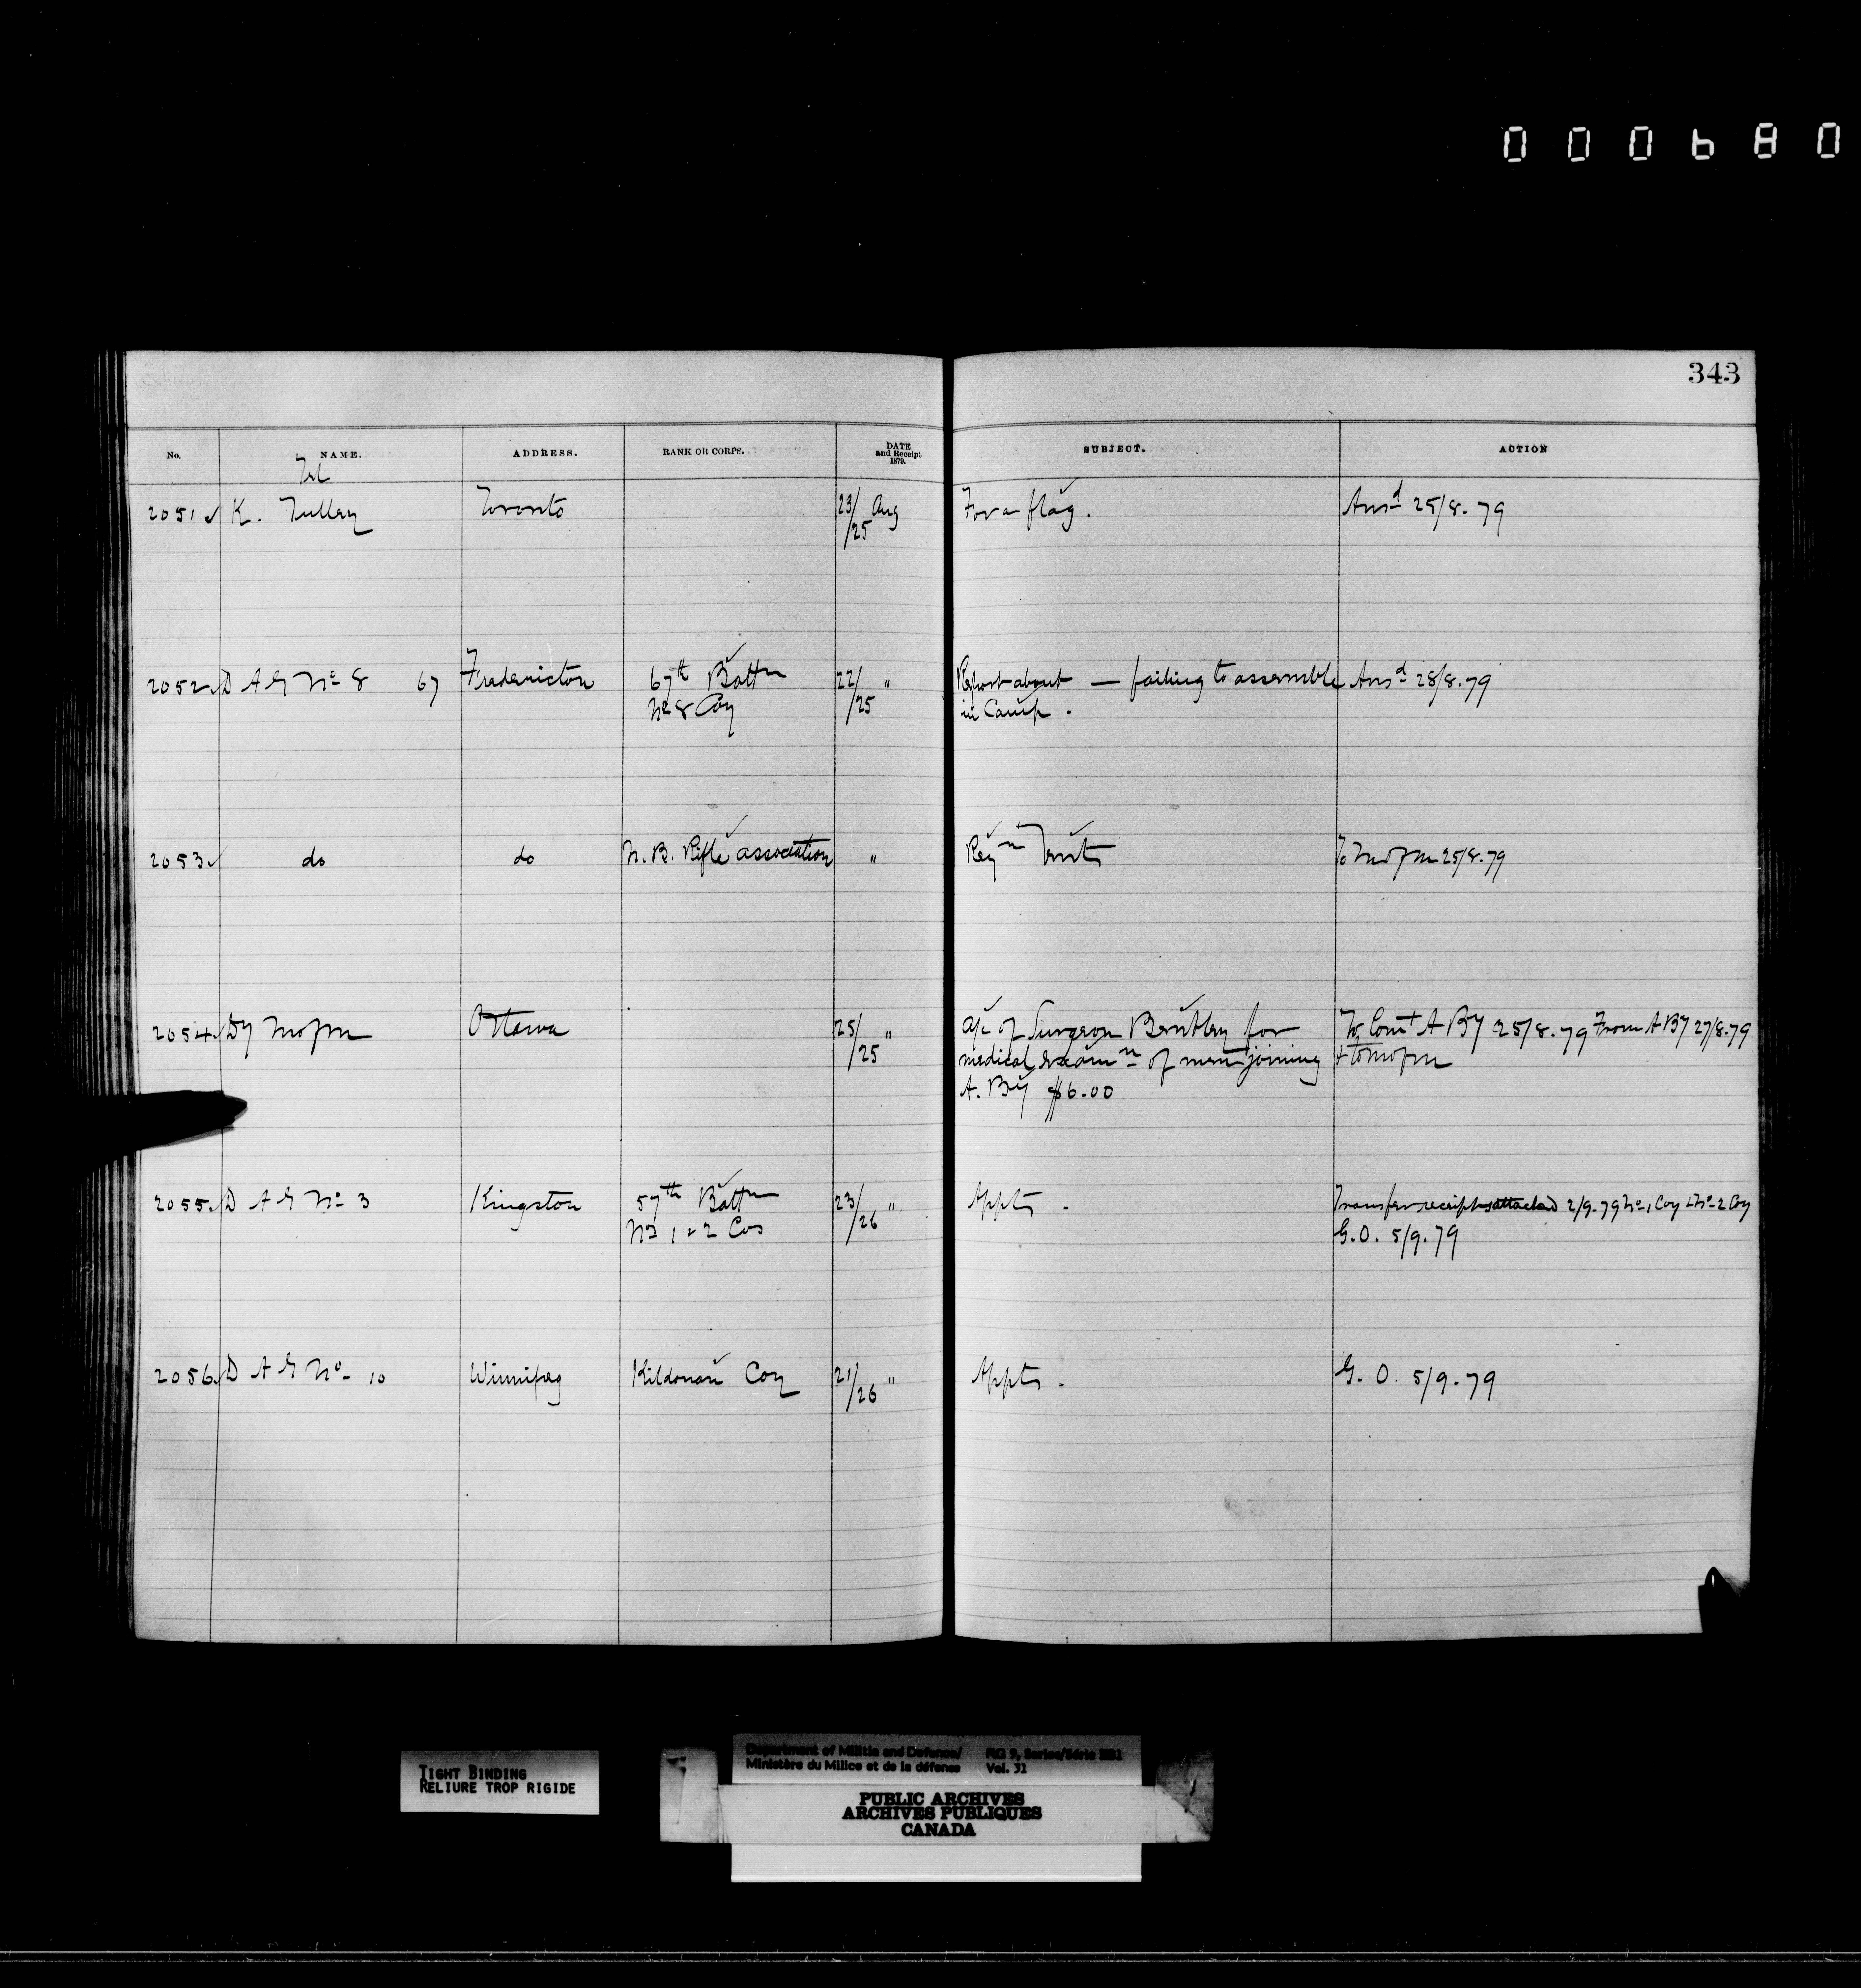 000680
343
No. NAME. ADDRESS. RANK OR CORPS. DATE and Receipt 1879. SUBJECT. ACTION
Tel
2051 K. Tulley Toronto 23/25 Aug For a flag. Ansd 25/8.79
2052 D A G No 8 67 Fredericton 67th Battn 22/25 " Report about — failing to assemble Ansd 28/8.79
No 8 Coy in Camp.
2053 do do N. B. Rifle association " Reqn Tents To M of M 25/8.79
2054 Dy M of M Ottawa 25/25 " a/c of Surgeon for To Comt A By 25/8.79 From A By 27/8.79
medical examn of men joining + to M of M
A. By $6.00
2055 D A G No 3 Kingston 57th Battn 23/26 " Appts. Transfer receipts attached 2/9.79 No 1 Coy + No 2 Coy
No 1 & 2 Cos G.O. 5/9.79
2056 D A G No 10 Winnipeg Kildonan Coy 21/26 " Appts. G. O. 5/9.79
TIGHT BINDING
RELIURE TROP RIGIDE
Department of Militia and Defence/ RG 9, Series/Série IIB1
Ministère du Milice et de la défense Vol. 31
PUBLIC ARCHIVES
ARCHIVES PUBLIQUES
CANADA